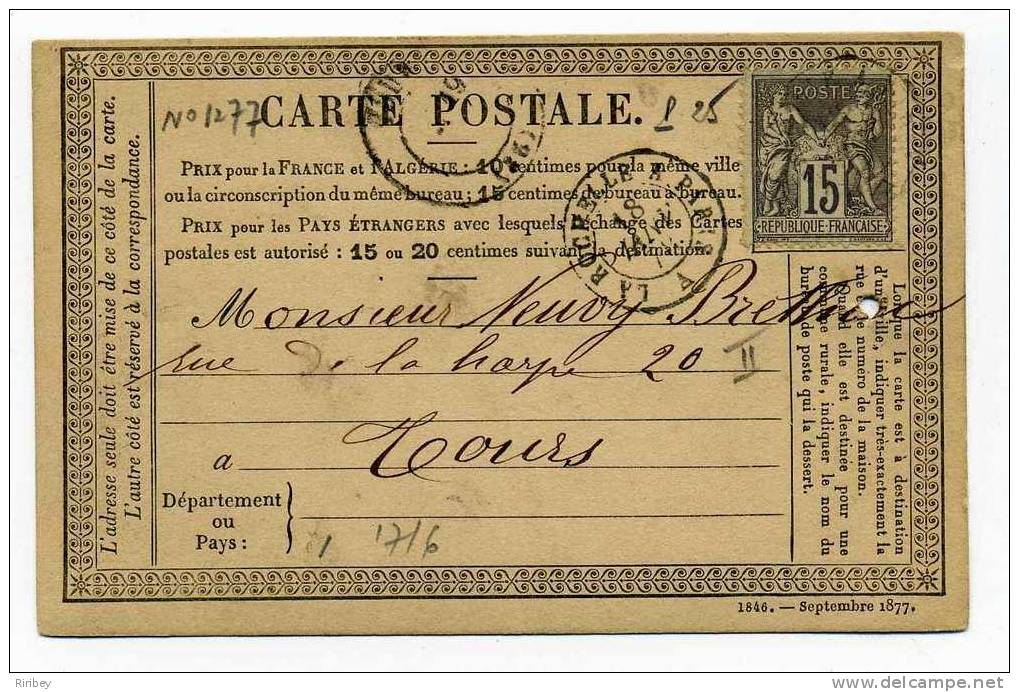 CARTE POSTALE.
No 1277
£ 25
PRIX pour la FRANCE et l'ALGÉRIE : 10 centimes pour la même ville
ou la circonscription du même bureau ; 15 centimes de bureau à bureau.
PRIX pour les PAYS ÉTRANGERS avec lesquels l'échange des Cartes
postales est autorisé : 15 ou 20 centimes suivant la destination.
POSTE
15
RÉPUBLIQUE FRANÇAISE
LA ROCHELLE A PARIS
Monsieur Neuvy
rue de la harpe 20
II
a Tours
Département
ou
Pays :
17/6
L'adresse seule doit être mise de ce côté de la carte.
L'autre côté est réservé à la correspondance.
Lorsque la carte est à destination
d'une ville, indiquer très-exactement la
rue et le numero de la maison.
Quand elle est destinée pour une
commune rurale, indiquer le nom du
bureau de poste qui la dessert.
1846. — Septembre 1877.
Riribey
delcampe.net